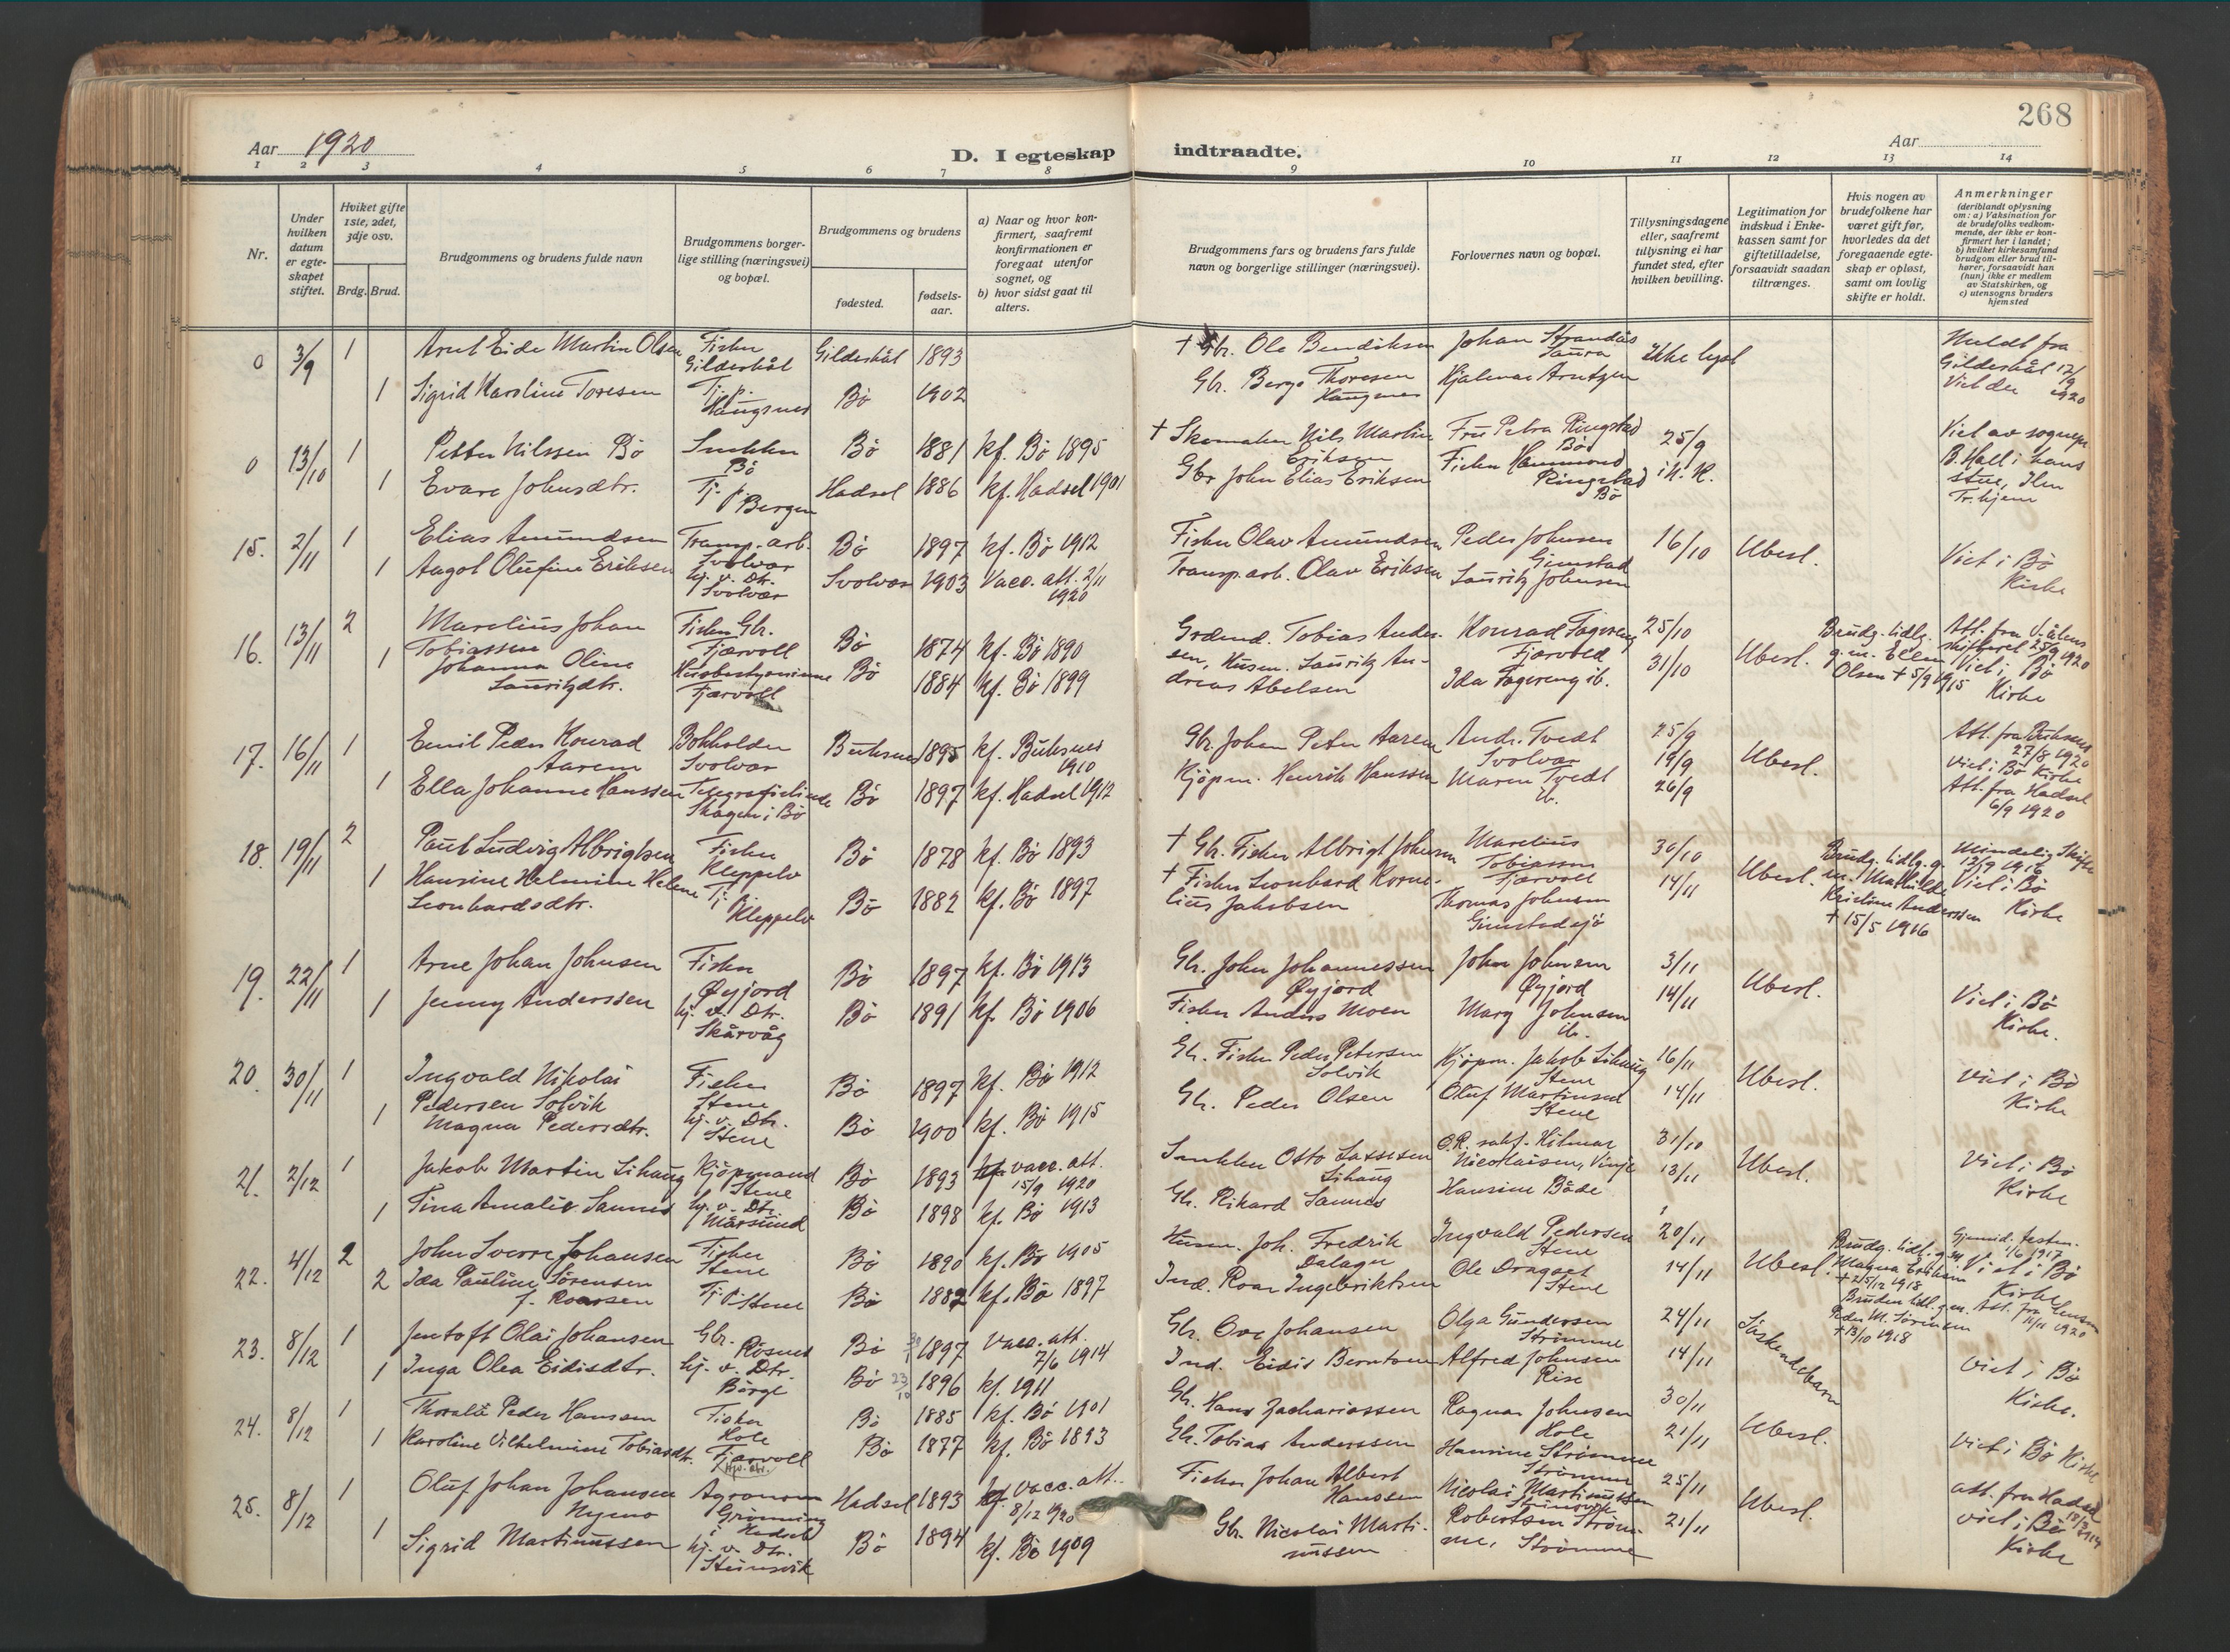 268
Aar 1920
D. I egteskap indtraadte.
Aar
1 2 3 4 5 6 7 8 9 10 11 12 13 14
Nr.
Under hvilken datum er egteskapet stiftet.
Hviket gifte 1ste, 2det, 3dje osv.
Brdg. Brud.
Brudgommens og brudens fulde navn
Brudgommens borgerlige stilling (næringsvei) og bopæl.
Brudgommens og brudens
fødested.
fødselsaar.
a) Naar og hvor konfirmert, saafremt konfirmationen er foregaat utenfor sognet, og
b) hvor sidst gaat til alters.
Brudgommens fars og brudens fars fulde navn og borgerlige stillinger (næringsvei).
Forlovernes navn og bopæl.
Tillysningsdagene eller, saafremt tillysning ei har fundet sted, efter hvilken bevilling.
Legitimation for indskud i Enkekassen samt for giftetilladelse, forsaavidt saadan tiltrænges.
Hvis nogen av brudefolkene har været gift før, hvorledes da det foregaaende egteskap er opløst, samt om lovlig skifte er holdt.
Anmerkninger
(deriblandt oplysning om: a) Vaksination for de brudefolks vedkommende, der ikke er konfirmert her i landet;
b) hvilket kirkesamfund brudgom eller brud tilhører, forsaavidt han (hun) ikke er medlem av Statskirken, og
c) utensogns bruders hjemsted
0 3/9 1 Arnt Eide Martin Olsen Fisker Gildeskål Gildeskål 1893 † Gbr. Ole Bendiksen Johan Strandås Saura Ikke lyst Meldt fra Gildeskål 12/9 1920
1 Sigrid Karoline Toresen Tj. p. Haugsnes Bø 1902 Gbr. Berge Thoresen Haugsnes Hjalmar Arntzen Viet der
0 13/10 1 Petter Nilssen Bø Snekker Bø Bø 1881 kf. Bø 1895 † Skomaker Nils Martin Eriksen Fru Petra Ringstad Bø 25/9 Viet av sognepr. B. Hall i hans stue,
1 Evare Johnsdtr. Tj. p. Bergen Hadsel 1886 kf. Hadsel 1901 Gbr John Elias Eriksen Fisker Hammond Ringstad Bø i K. K. Tr. hjem
15. 2/11 1 Elias Amundsen Transp. arb. Svolvær Bø 1897 kf. Bø 1912 Fisker Olav Amundsen Peder Johnsen Gimstad 16/10 Ubesl. Viet i Bø Kirke
1 Aagot Olufine Eriksen hj. v. Dtr. Svolvær Svolvær 1903 Vacc. att. 2/11 1920 Transp. arb. Olav Eriksen Lauritz Johnsen
16. 13/11 2 Marelius Johan Tobiassen Fisker Gbr. Fjærvoll Bø 1874 kf. Bø 1890 Grdmd. Tobias Andersen, Konrad Fagereng Fjærvold 25/10 Ubesl. Brudg. tidlg. g. m. Ellen Olsen † 5/9 1915 Att. fra V-ålens skifteret 25/9 1920
1 Johanna Oline Lauritzdtr. Husbestyrerinne Fjærvoll Bø 1884 kf. Bø 1899 Husm. Lauritz Andreas Abelsen Ida Fagereng ib. 31/10 Viet i Bø Kirke
17. 16/11 1 Emil Peder Konrad Aarem Bokholder Svolvær Buksnes 1895 kf. Buksnes 1910 Gbr. Johan Peter Aarem Andr. Tvedt Svolvær 25/9 19/9 Ubesl. Att. fra Buksnes 27/8 1920 Viet i Bø Kirke
1 Ella Johanne Hanssen Telegrafistinde Skagen i Bø Bø 1897 kf. Hadsel 1912 Kjøpm. Henrik Hanssen Maren Tvedt ib. 26/9 Att. fra Hadsel 6/9 1920
18. 19/11 2 Paul Ludvig Albrigtsen Fisker Kleppelv Bø 1878 kf. Bø 1893 † Gbr. Fisker Albrigt Johnsen Marelius Tobiassen Fjærvoll 30/10 Ubesl. Brudg. tidlg. g. m. Mathilde Kristine Anderssen † 15/5 1916 Mindelig Skifte 13/9 1916
1 Hansine Helmine Helene Leonhardsdtr. Tj. p. Kleppelv Bø 1882 kf. Bø 1897 † Fisker Leonhard Kornelius Jakobsen Thomas Johnsen Gimstadsjø 14/11 Viet i Bø Kirke
19. 22/11 1 Arne Johan Johnsen Fisker Øyjord Bø 1897 kf. Bø 1913 Gbr. John Johannessen Øyjord John Johnsen Øyjord 3/11 Ubesl. Viet i Bø Kirke.
1 Jenny Anderssen hj. v. Dtr. Skårvåg Bø 1891 kf. Bø 1906 Fisker Anders Moen Marg Johnsen ib. 14/11
20. 30/11 1 Ingvald Nikolai Pedersen Solvik Fisker Stene Bø 1897 kf. Bø 1912 Gbr. Fisker Peder Petersen Solvik Kjøpm. Jakob Lihaug Stene 16/11 Ubesl. Viet i Bø Kirke
1 Magna Pedersdtr. hj. v. Dtr. Stene Bø 1900 kf. Bø 1915 Gbr. Peder Olsen Oluf Martinsen Stene 14/11
21. 2/12 1 Jakob Martin Lihaug Kjøpmand Stene Bø 1893 vacc. att. 15/9 1920 Snekker Otto Lassesen Lihaug O.R. sakf. Hilmar Nicolaisen, Vinje 31/10 Ubesl. Viet i Bø Kirke
1 Tina Amalie Sannes hj. v. Dtr. Mårsund Bø 1898 kf. Bø 1913 Gbr. Rikard Sannes Hansine Både 13/11
22. 4/12 2 John Sverre Johansen Fisker Stene Bø 1890 kf. Bø 1905 Husm. Joh. Fredrik Dalager Ingvald Pedersen Stene 20/11 Ubesl. Brudg. tidl. g. m. Magna † 25/12 1918 Gjensid. testm. 1/6 1917 Viet i Bø Kirke
2 Ida Pauline Sørensen f. Roarsen Tj. p. Stene Bø 1882 kf. Bø 1897 Ind. Roar Ingebriktsen Ole Dragset Stene 14/11 Bruden tidl. g. m. Peder M. Sørensen † 13/10 1918 Att. fra 11/11 1920
23. 8/12 1 Jentoft Olai Johansen Gbr. Røsnes Bø 1897 Vacc. att. 7/6 1914 Gbr. Ove Johansen Olga Gundersen Strømme 24/11 Søskendebarn Viet i Bø Kirke.
1 Inga Olea Eidisdtr. hj. v. Dtr. Børge Bø 23/10 1896 kf. 1911 Ind. Eidis Berntsen Alfred Johnsen Rise 14/11
24. 8/12 1 Peder Hansen Fisker Hole Bø 1885 kf. Bø 1901 Gbr. Hans Zachariassen Ragnar Johnsen Hole 30/11 Ubesl. Viet i Bø Kirke
1 Karoline Vilhelmine Tobiasdtr. Fjærvoll Bø 1877 kf. Bø 1893 Gbr. Tobias Anderssen Hansine Strømme Strømme 21/11
25. 8/12 1 Oluf Johan Johansen Nymo Agronom Grønning i Hadsel Hadsel 1893 vacc. att. 8/12 1920 Fisker Johan Albert Hanssen Nicolai Martinussen Steinsvik 25/11 Ubesl. att. fra Hadsel
1 Sigrid Martinussen hj. v. Dtr. Steinsvik Bø 1894 kf. Bø 1909 Gbr. Nicolai Martinussen Robertsen Strømme, Strømme 21/11 viet i Bø Kirke